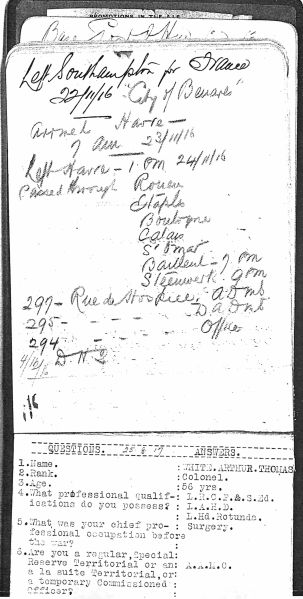 PROMOTIONS IN THE A.I.F.
Left Southampton for France
22/11/16 "City of Benares"
Arrived Havre -
7 am 23/11/16
Left Havre - 1 pm 24/11/16
Passed through Rouen
Etaples
Boulogne
Calais
St Omer
Bailleul - 7 pm
Steenwerk 9 pm
297 - Rue de A.D.M.S
295 - - - - - D A D M S
294 - - - - - Office
4/12/16
/16
QUESTIONS. 25 6 17 ANSWERS.
1.Name. :WHITE.ARTHUR.THOMAS
2.Rank. :Colonel.
3.Age. :56 yrs.
4.What professional qualif- : L.R.C.P.& S.Ed.
ications do you possess? : L.A.H.D.
: L.Hd.Rotunda.
5.What was your chief pro- : Surgery.
fessional occupation before
the war?
6.Are you a regular,Special:
Reserve Territorial or an: A.A.M.C.
a la suite Territorial,or:
a temporary Commissioned :
Officer?